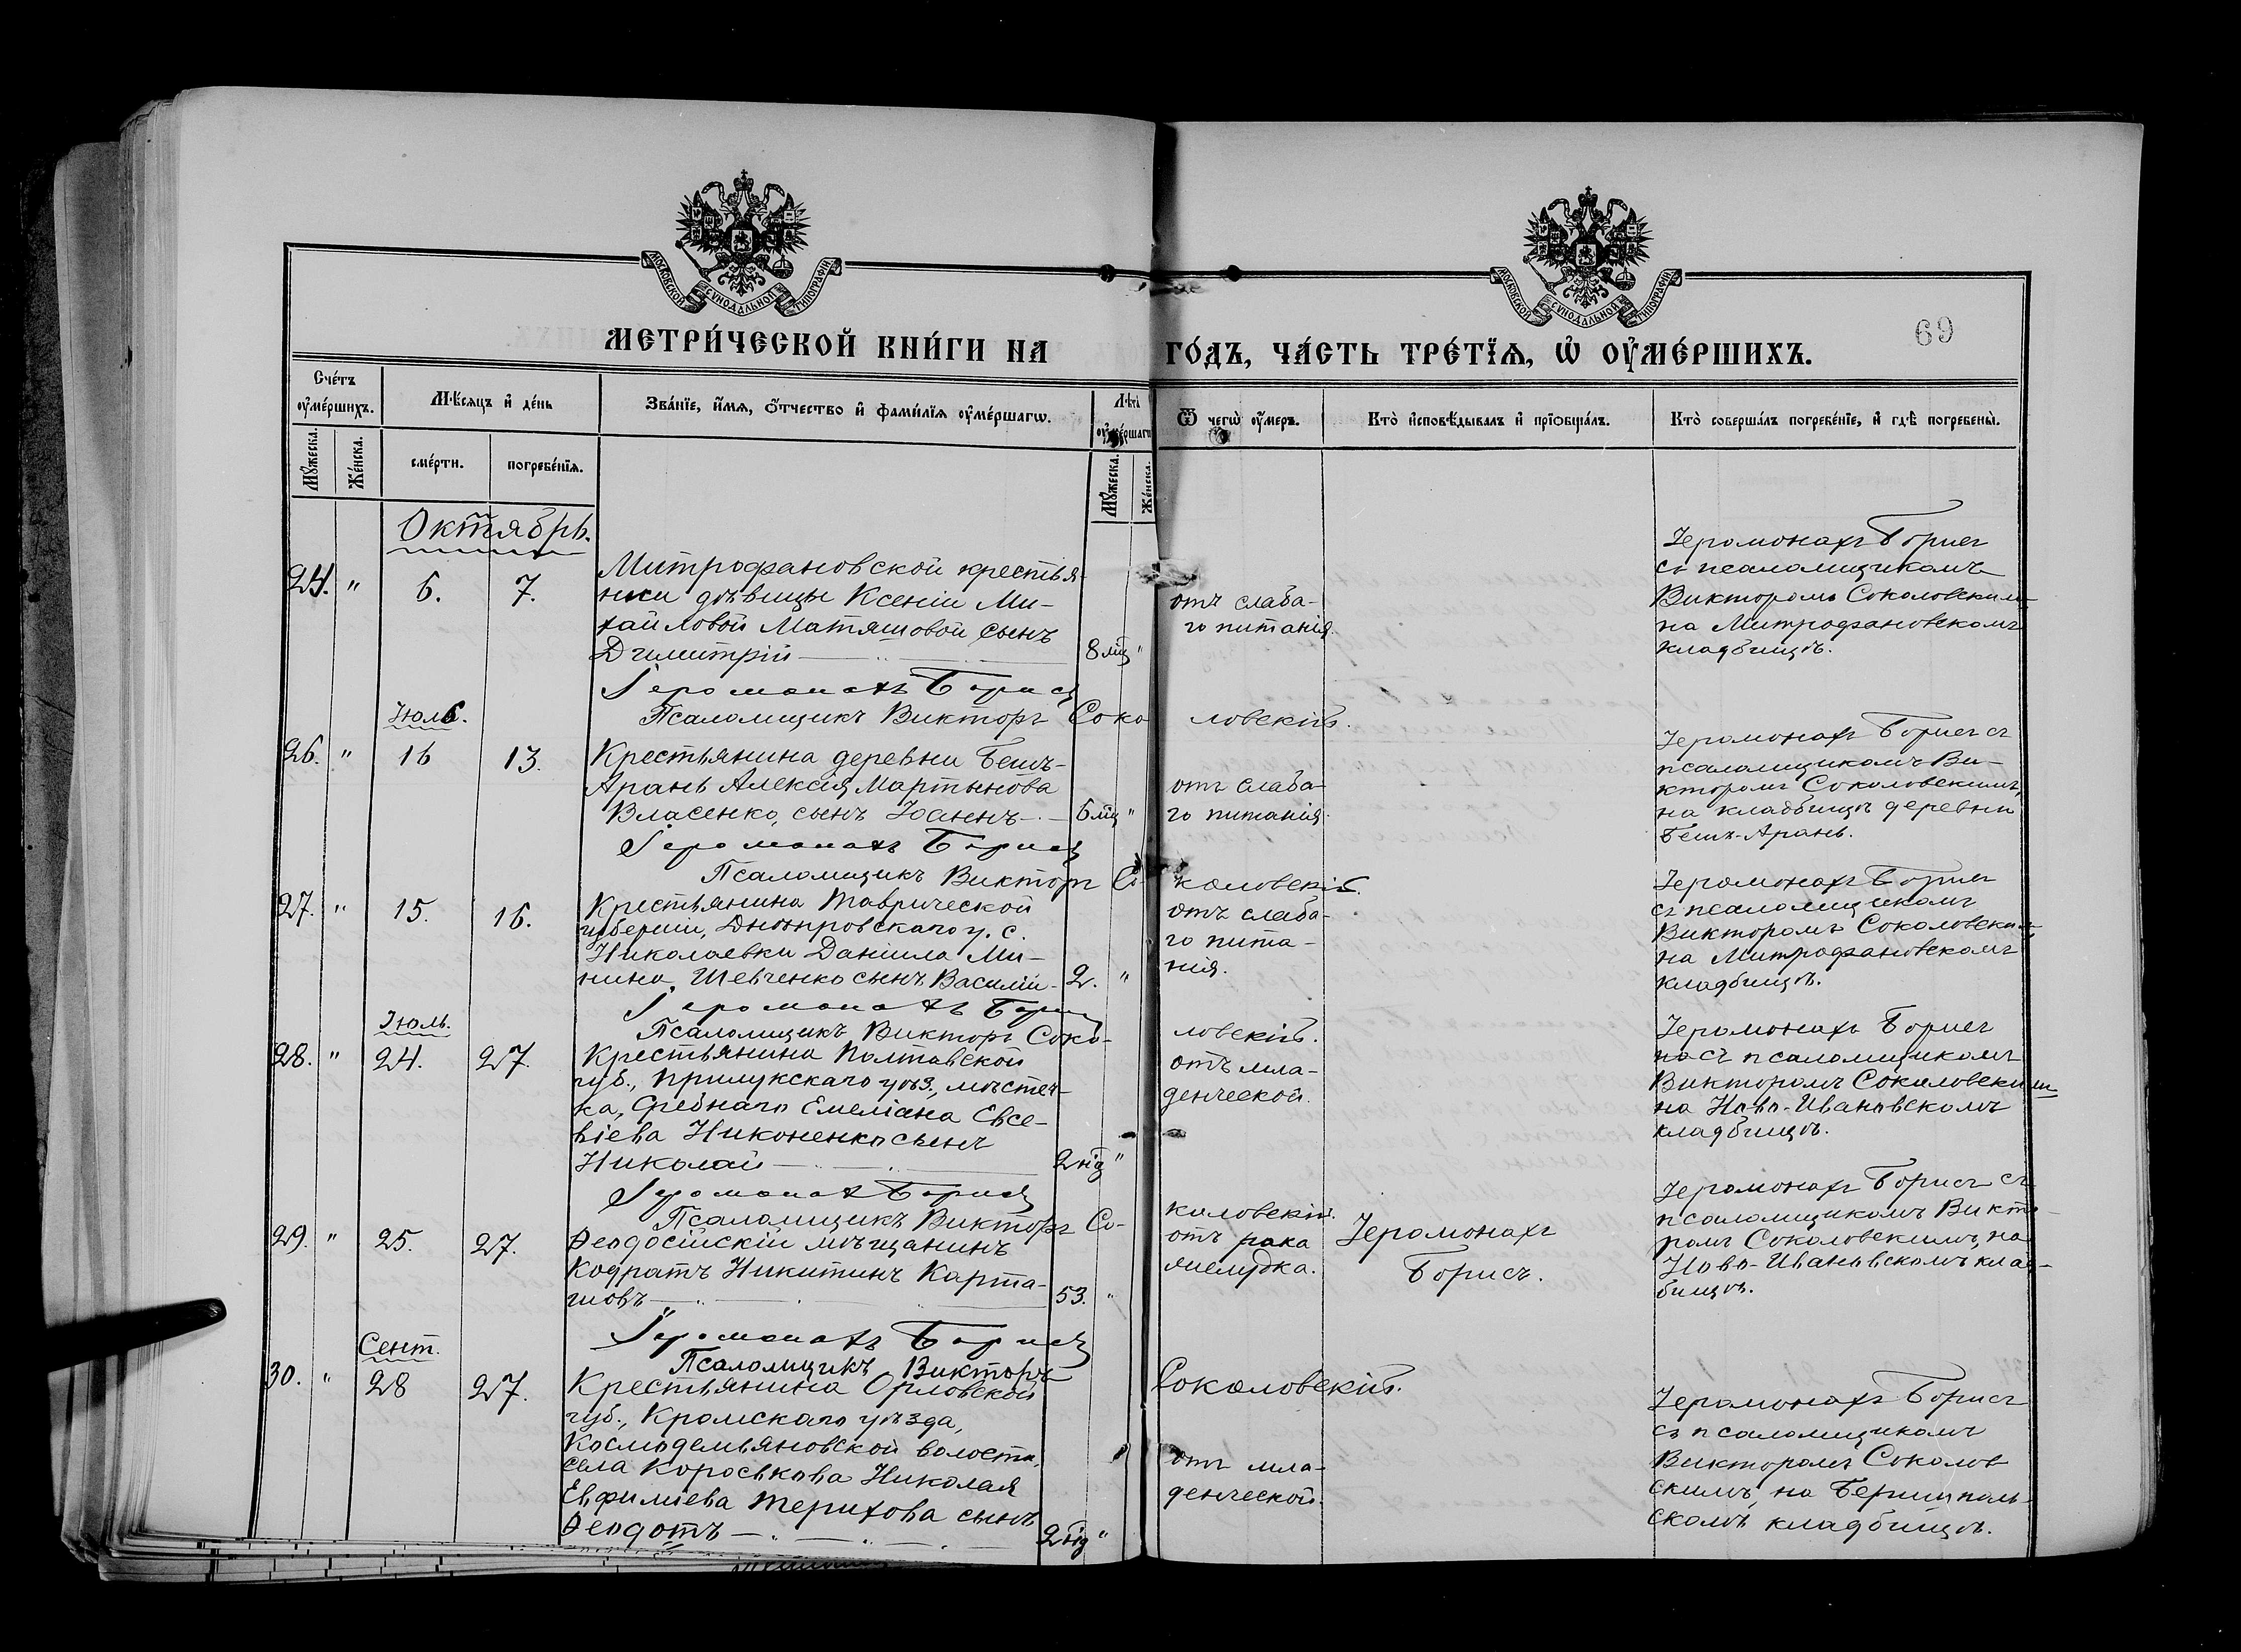 МОСКОВСКОЙ СѴНОДАЛЬНОЙ ТИПОГРАФІИ
МОСКОВСКОЙ СѴНОДАЛЬНОЙ ТИПОГРАФІИ
69
МЕТРИ́ЧЕСКОЙ КНИ́ГИ НА
ГО́ДЪ, ЧА́СТЬ ТРЕ́ТЇѦ, Ѡ҆ ОУ҆МЕ́РШИХЪ.
Сче́тъ оу҆ме́ршихъ.
Мѣ́сѧцъ и҆ де́нь
Зва́нїе, и҆́мѧ, ѻ҆́тчество и҆ фамѝлїѧ оу҆ме́ршагѡ.
Лѣ́та оу҆ме́ршагѡ
Ѿ чегѡ̀ оу҆́меръ.
Кто̀ и҆сповѣ́дывалъ и҆ прїѻбща́лъ.
Кто̀ соверша́лъ погребе́нїе, и҆ гдѣ̀ погребены̀.
Мꙋ́жеска.
Же́нска.
сме́рти.
погребе́нїѧ.
Мꙋ́жеска.
Же́нска.
Октябрь.
24. " 6. 7.
Митрофановской крестья-
нки дѣвицы Ксеніи Ми-
хайловой Матяшовой сынъ
Димитрій 8 мц "
отъ слаба-
го питанія.
Іеромонахъ Борисъ
съ псаломщикомъ
Викторомъ Соколовскимъ
на Митрофановскомъ
кладбищѣ.
Іеромонахъ Борисъ
Псаломщикъ Викторъ Соко ловскій.
Іюль.
26. " 16 13.
Крестьянина деревни Бешъ-
Арань Алексія Мартынова
Власенко, сынъ Іоаннъ 6 мц "
отъ слаба-
го питанія.
Іеромонахъ Борисъ съ
псаломщикомъ Ви-
кторомъ Соколовскимъ,
на кладбищѣ деревни
Бешъ-Арань.
Іеромонахъ Борисъ
Псаломщикъ Викторъ Со- коловскій.
27. " 15. 16.
Крестьянина Таврической
губерніи, Днѣпровскаго у. с.
Николаевки Даніила Ми-
нина, Шевченко сынъ Василій 2. "
отъ слаба-
го пита-
нія.
Іеромонахъ Борисъ
съ псаломщикомъ
Викторомъ Соколовскимъ
на Митрофановскомъ
кладбищѣ.
Іеромонахъ Борисъ
Псаломщикъ Викторъ Соко- ловскій.
Іюль.
28. " 24. 27.
Крестьянина Полтавской
губ., Прилукскаго уѣз., мѣстеч-
ка, Сребнаго Емеліана Евсе-
віева Никоненко сынъ
Николай 2 нд "
отъ мла-
денческой.
Іеромонахъ Борисъ
на съ псаломщикомъ
Викторомъ Соколовским
на Ново-Ивановскомъ
кладбищѣ.
Іеромонахъ Борисъ
Псаломщикъ Викторъ Со- коловскій.
29. " 25. 27.
Ѳеодосійскій мѣщанинъ
Кодратъ Никитинъ Карта-
шовъ 53. "
отъ рака
желудка.
Іеромонахъ
Борисъ.
Іеромонахъ Борисъ съ
псаломщикомъ Викто-
ромъ Соколовскимъ, на
Ново-Ивановскомъ клад-
бищѣ.
Іеромонахъ Борисъ
Псаломщикъ Викторъ Соколовскій.
Сент.
30. " 28 27.
Крестьянина Орловской
губ., Кромскаго уѣзда,
Космодемьяновской волости,
села Короськова Николая
Евфиміева Терихова сынъ
Ѳеодотъ 2 нд "
отъ мла-
денческой.
Іеромонахъ Борисъ
съ псаломщикомъ
Викторомъ Соколов
скимъ, на
скомъ кладбищѣ.